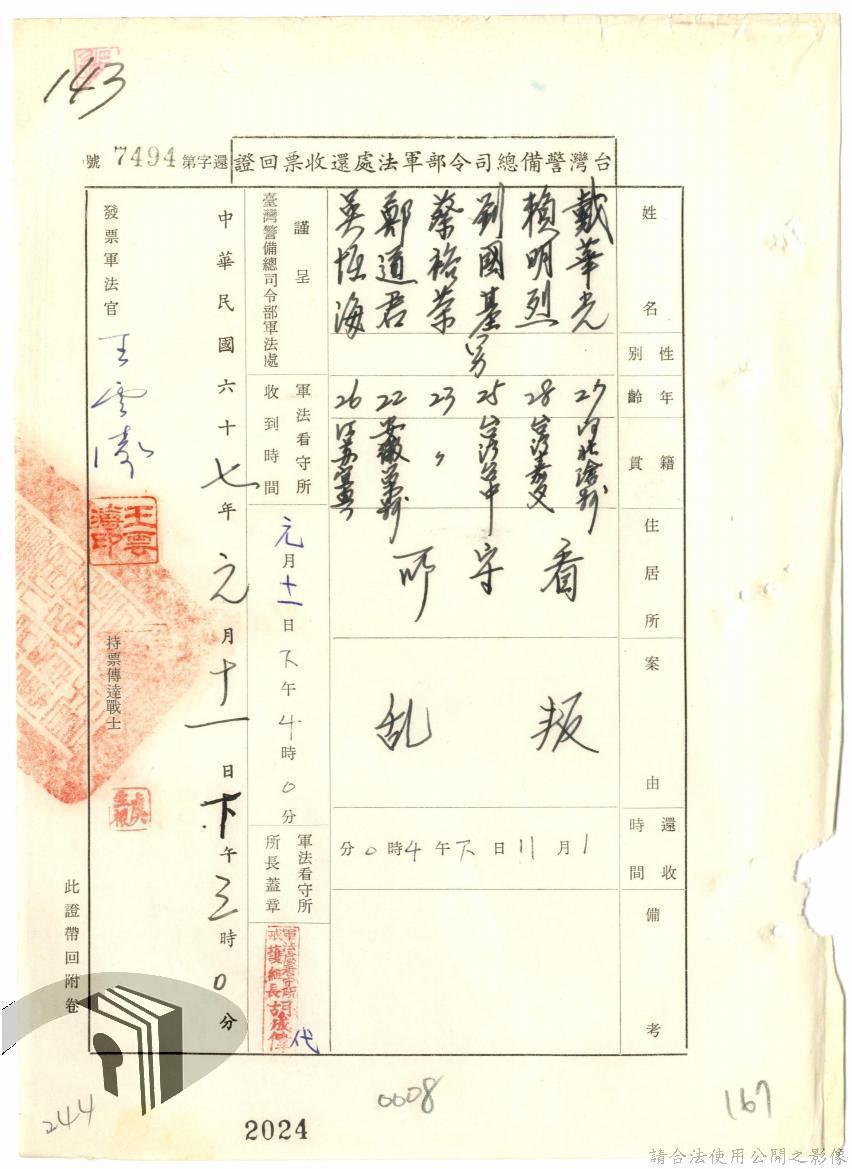 143
台灣警備總司令部軍法處還收票回證
還字第7494號
姓名
戴華光
賴明烈
劉國基
蔡裕榮
鄭道君
吳恆海
性別
男
年齡
27
28
25
23
22
26
籍貫
河北滄州
台灣嘉义
台湾台中
〃
安徽
江蘇宜興
住居所
看守所
案由
叛乱
還收時間
1月11日下午4時0分
備考
謹呈
臺灣警備總司令部軍法處
軍法看守所
收到時間
元月十一日下午4時0分
軍法看守所
所長蓋章
代
中華民國六十七年元月十一日下午三時0分
發票軍法官
王雲濤
王雲濤印
持票傳達戰士
此證帶回附卷
244
0008
167
2024
請合法使用公開之影像